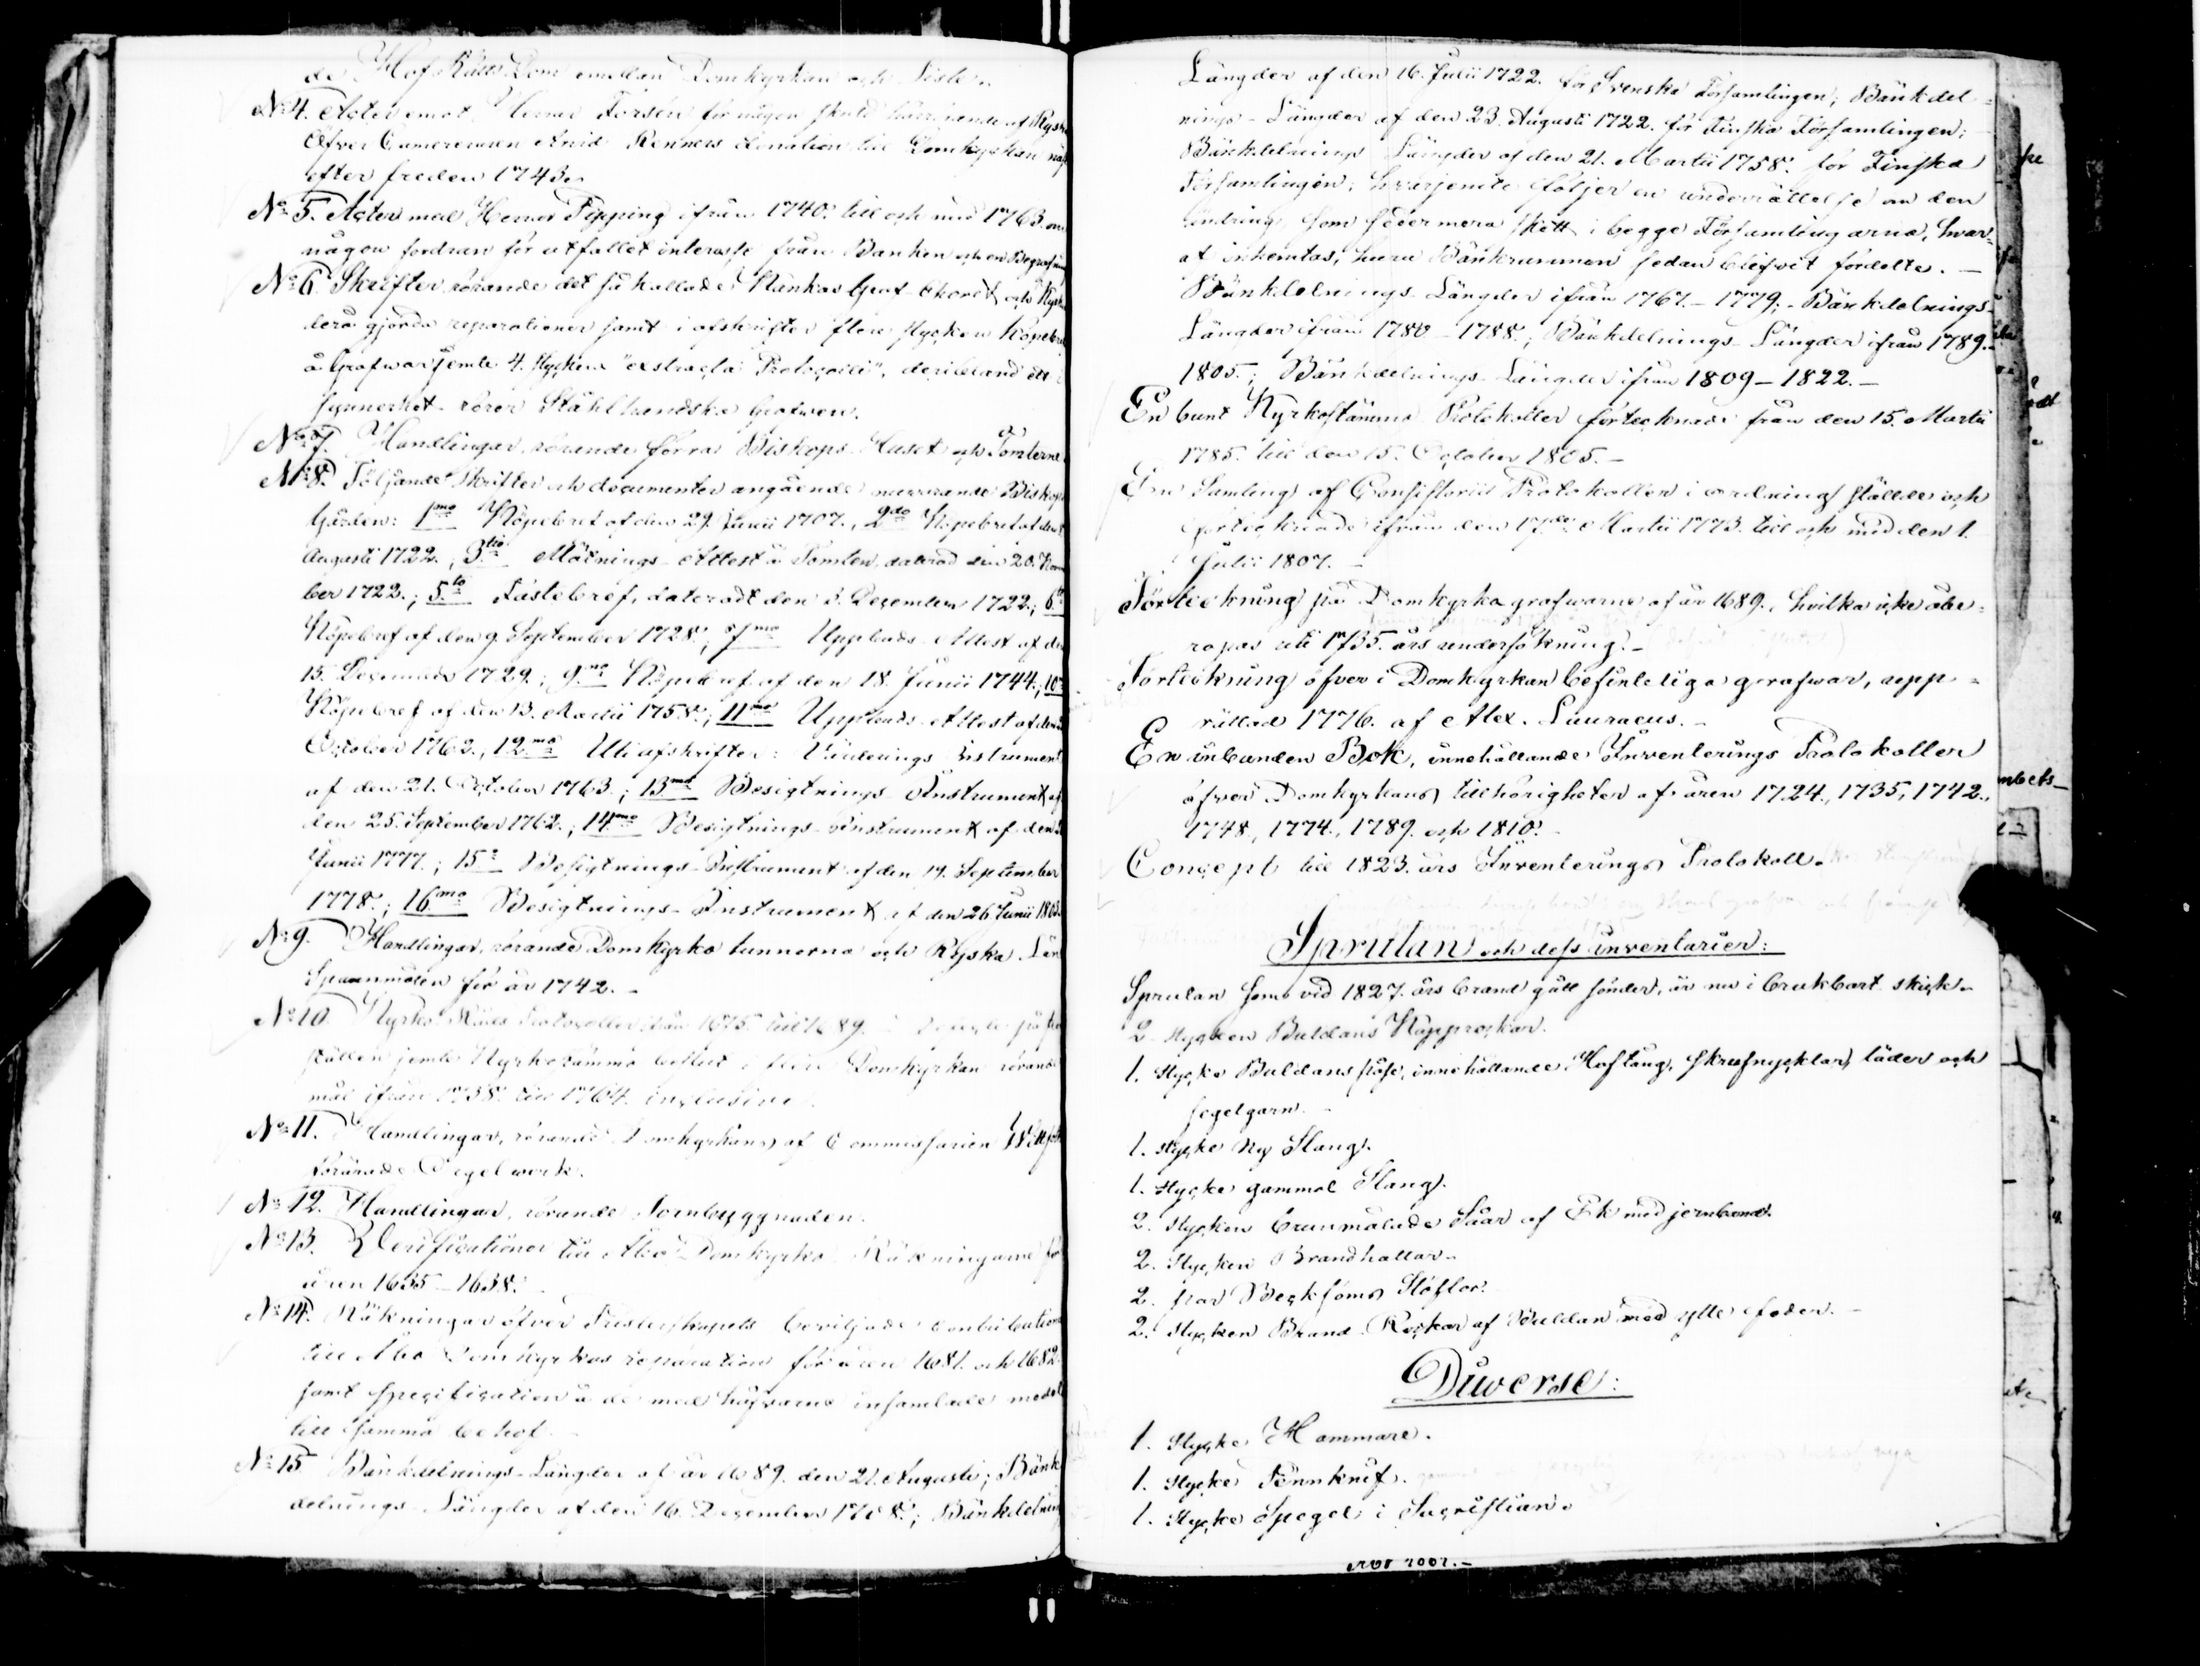 de Hof Rätts Dom emellan Domkyrkan och
No 4. Acter emot Herrar Forsén för någon skuld härrörande af Ryska
Öfver Camereraren Arvid Renners donation till Domkyrkan
efter freden 1743.
No 5. Acter med Herrar Pipping ifrån 1740. till och med 1763. om
någon fordran för utfallet interesse från Banken och en
No 6. Skrifter rörande det så kallade Kankas Graf Choret och
dera gjorda reparationer samt i afskrifter flere stycken Köpebref
å Grafwar jemte 4. Stycken "extracta Protocoili", deribland ett i
synnerhet rörer Stålhandska Grafwen.
No 7. Handlingar, rörande förra Biskops Huset och Tomterne
No 8. Följande Skrifter och documenter angående nuvarande Biskops
Gården: 1mo Köpebref af den 29. Junii 1707., 2do Köpebref af den
Augusti 1722., 3tio Mätnings-Attest å Tomten, daterad den 20.
ber 1722.; 5to Fastebref, dateradt den 3. December 1722.; 6to
Köpebref af den 9. September 1728.; 7mo Uppbuds-Attest af den
15. December 1729.; 9no Köpebref af den 18. Junii 1744., 10mo
Köpebref af den 13. Martii 1758.; 11mo Uppbuds-Attest af den
October 1762., 12mo Uti afskrifter: Värderings Instrument
af den 21. October 1763.; 13mo Besigtnings-Instrument af
den 25. September 1762.; 14mo Besigtnings-Instrument af den
Junii 1777.; 15o Besigtnings-Instrument af den 19. September
1778.; 16mo Besigtnings-Instrument af den 26 Junii 1803.
No 9. Handlingar, rörande Domkyrko tunnorna och Ryska
Spannmålen för år 1742.
No 10. Kyrko Råds Protocoller ifrån 1675. till 1689.
ställen jemte Kyrkostämmo beslut i flere Domkyrkan rörande
mål ifrån 1738. till 1764. inclusive.
No 11. Handlingar, rörande Domkyrkans af Commissarien
förärade Orgelwerk.
No 12. Handlingar, rörande Tornbyggnaden.
No 13. Verificationer till Åbo Domkyrko Räkningarne för
åren 1635-1638.
No 14. Räkningar öfver Presterskapets beviljade Contribution
till Åbo Domkyrkas reparation för åren 1681. och 1682.
samt specification å de med håfvarne insamlade medel
till samma behof.
No 15. Bänkdelnings-Längder af år 1689. den 21. Augusti; Bänk
delnings-Längder af den 16. December 1708.; Bänkdelnings
Längder af den 16. Julii 1722. för Svenska Församlingen; Bänkdel-
nings-Längder af den 23. Augusti 1722. för Finska Församlingen;
Bänkdelnings Längder af den 21. Martii 1758. för Finska
Församlingen; hvarjemte följer en underrättelse om den
ändring, som sedermera skett i begge Församlingarna, hvar-
at inhemtas, huru Bänkrummen sedan blefvit fördelte. -
Bänkdelnings-Längder ifrån 1767. - 1779.; Bänkdelnings-
Längder ifrån 1780 - 1788.; Bänkdelnings-Längder ifrån 1789. -
1805.; Bänkdelnings-Längder ifrån 1809 - 1822. -
En bunt Kyrkostämmo Protokoller förtecknade från den 15. Martii
1785. till den 15. October 1805. -
En Samling af Consistorii Protokoller i ordning ställde och
förtecknade ifrån den 17de Martii 1773. till och med den 1.
Julii 1807. -
Förteckning på Domkyrko grafwarne af år 1689., hvilka icke åbe-
ropas uti 1735. års undersökning. -
Förteckning öfver i Domkyrkan befinteliga grafwar, upp-
rättad 1776. af Alex. Lauraeus. -
En inbunden Bok, innehållande Inventerings Protokoller
öfver Domkyrkans tillhörigheter af åren 1724., 1735, 1742.,
1748., 1774., 1789. och 1810. -
Concept till 1823. års Inventerings Protokoll.
Sprutan och dess inventarier:
Sprutan som vid 1827. års brand gått sönder, är nu i brukbart skick.
2 stycken Buldans Kapprockar.
1. stycke Buldans påse, innehållande Hoftång, skrufnycklar, läder och
segelgarn. -
1. stycke ny Slang.
1. stycke gammal Slang.
2. stycken brunmålade Såar af Ek med jernband.
2. stycken Brandhattar.
2. par Becksöms Stöflor.
2. stycken Brand-Rockar af Buldan med ylle foder. -
Diverse:
1. stycke Hammare.
1. stycke Pennknif.
1. stycke Spegel i Sacristian.